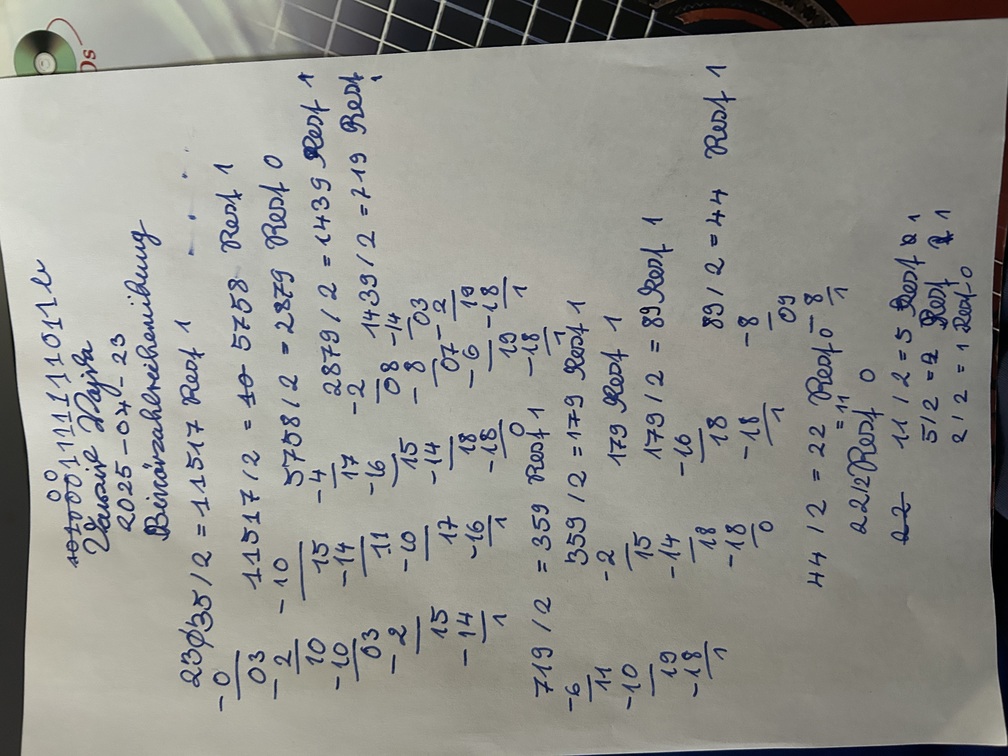 2025-04-23
23035/2 = 11517 Rest 1
-0
03
-2
10
-10
03
-2
15
-14
1
11517/2 = 5758 Rest 1
-10
15
-14
11
-10
17
-16
1
5758/2 = 2879 Rest 0
-4
17
-16
15
-14
18
-18
0
2879/2 = 1439 Rest 1
-2
08
-8
07
-6
19
-18
1
1439/2 = 719 Rest 1
-14
03
-2
19
-18
1
719/2 = 359 Rest 1
-6
11
-10
19
-18
1
359/2 = 179 Rest 1
-2
15
-14
18
-18
0
179 Rest 1
179/2 = 89 Rest 1
-16
18
-18
1
89/2 = 44 Rest 1
-8
09
-8
1
44/2 = 22 Rest 0
= 11
22/2 Rest 0
22
11/2 = 5 Rest 1
5/2 = 2 Rest 1
2/2 = 1 Rest 0